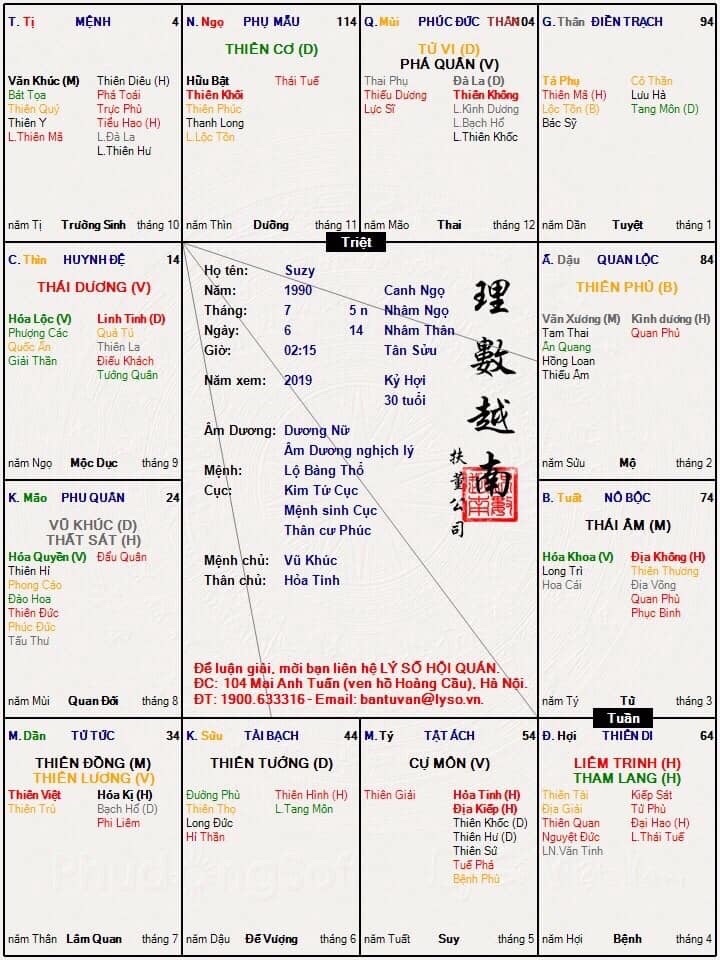 T. Tị MỆNH 4
Văn Khúc (M)
Bát Tọa
Thiên Quý
Thiên Y
L.Thiên Mã
Thiên Diêu (H)
Phá Toái
Trực Phù
Tiểu Hao (H)
L.Đà La
L.Thiên Hư
năm Tị Trường Sinh tháng 10
N. Ngọ PHỤ MẪU 114
THIÊN CƠ (D)
Hữu Bật
Thiên Khôi
Thiên Phúc
Thanh Long
L.Lộc Tồn
Thái Tuế
năm Thìn Dưỡng tháng 11
Q. Mùi PHÚC ĐỨC THÂN 104
TỬ VI (D)
PHÁ QUÂN (V)
Thai Phụ
Thiếu Dương
Lực Sĩ
Đà La (D)
Thiên Không
L.Kình Dương
L.Bạch Hổ
L.Thiên Khốc
năm Mão Thai tháng 12
G. Thân ĐIỀN TRẠCH 94
Tả Phụ
Thiên Mã (H)
Lộc Tồn (B)
Bác Sỹ
Cô Thần
Lưu Hà
Tang Môn (D)
năm Dần Tuyệt tháng 1
Triệt
C. Thìn HUYNH ĐỆ 14
THÁI DƯƠNG (V)
Hóa Lộc (V)
Phượng Các
Quốc Ấn
Giải Thần
Linh Tinh (D)
Quả Tú
Thiên La
Điếu Khách
Tướng Quân
năm Ngọ Mộc Dục tháng 9
Họ tên: Suzy
Năm: 1990 Canh Ngọ
Tháng: 7 5 n Nhâm Ngọ
Ngày: 6 14 Nhâm Thân
Giờ: 02:15 Tân Sửu
Năm xem: 2019 Kỷ Hợi
30 tuổi
Âm Dương: Dương Nữ
Âm Dương nghịch lý
Mệnh: Lộ Bàng Thổ
Cục: Kim Tứ Cục
Mệnh sinh Cục
Thân cư Phúc
Mệnh chủ: Vũ Khúc
Thân chủ: Hỏa Tinh
理數越南
扶董公司
Để luận giải, mời bạn liên hệ LÝ SỐ HỘI QUÁN.
ĐC: 104 Mai Anh Tuấn (ven hồ Hoàng Cầu), Hà Nội.
ĐT: 1900.633316 - Email: bantuvan@lyso.vn.
Ấ. Dậu QUAN LỘC 84
THIÊN PHỦ (B)
Văn Xương (M)
Tam Thai
Ân Quang
Hồng Loan
Thiếu Âm
Kình dương (H)
Quan Phủ
năm Sửu Mộ tháng 2
K. Mão PHU QUÂN 24
VŨ KHÚC (D)
THẤT SÁT (H)
Hóa Quyền (V)
Thiên Hỉ
Phong Cáo
Đào Hoa
Thiên Đức
Phúc Đức
Tấu Thư
Đẩu Quân
năm Mùi Quan Đới tháng 8
B. Tuất NÔ BỘC 74
THÁI ÂM (M)
Hóa Khoa (V)
Long Trì
Hoa Cái
Địa Không (H)
Thiên Thương
Địa Võng
Quan Phù
Phục Binh
năm Tý Tử tháng 3
Tuần
M. Dần TỬ TỨC 34
THIÊN ĐỒNG (M)
THIÊN LƯƠNG (V)
Thiên Việt
Thiên Trù
Hóa Kị (H)
Bạch Hổ (D)
Phi Liêm
năm Thân Lâm Quan tháng 7
K. Sửu TÀI BẠCH 44
THIÊN TƯỚNG (D)
Đường Phù
Thiên Thọ
Long Đức
Hỉ Thần
Thiên Hình (H)
L.Tang Môn
năm Dậu Đế Vượng tháng 6
M. Tý TẬT ÁCH 54
CỰ MÔN (V)
Thiên Giải
Hỏa Tinh (H)
Địa Kiếp (H)
Thiên Khốc (D)
Thiên Hư (D)
Thiên Sứ
Tuế Phá
Bệnh Phù
năm Tuất Suy tháng 5
Đ. Hợi THIÊN DI 64
LIÊM TRINH (H)
THAM LANG (H)
Thiên Tài
Địa Giải
Thiên Quan
Nguyệt Đức
LN.Văn Tinh
Kiếp Sát
Tử Phù
Đại Hao (H)
L.Thái Tuế
năm Hợi Bệnh tháng 4